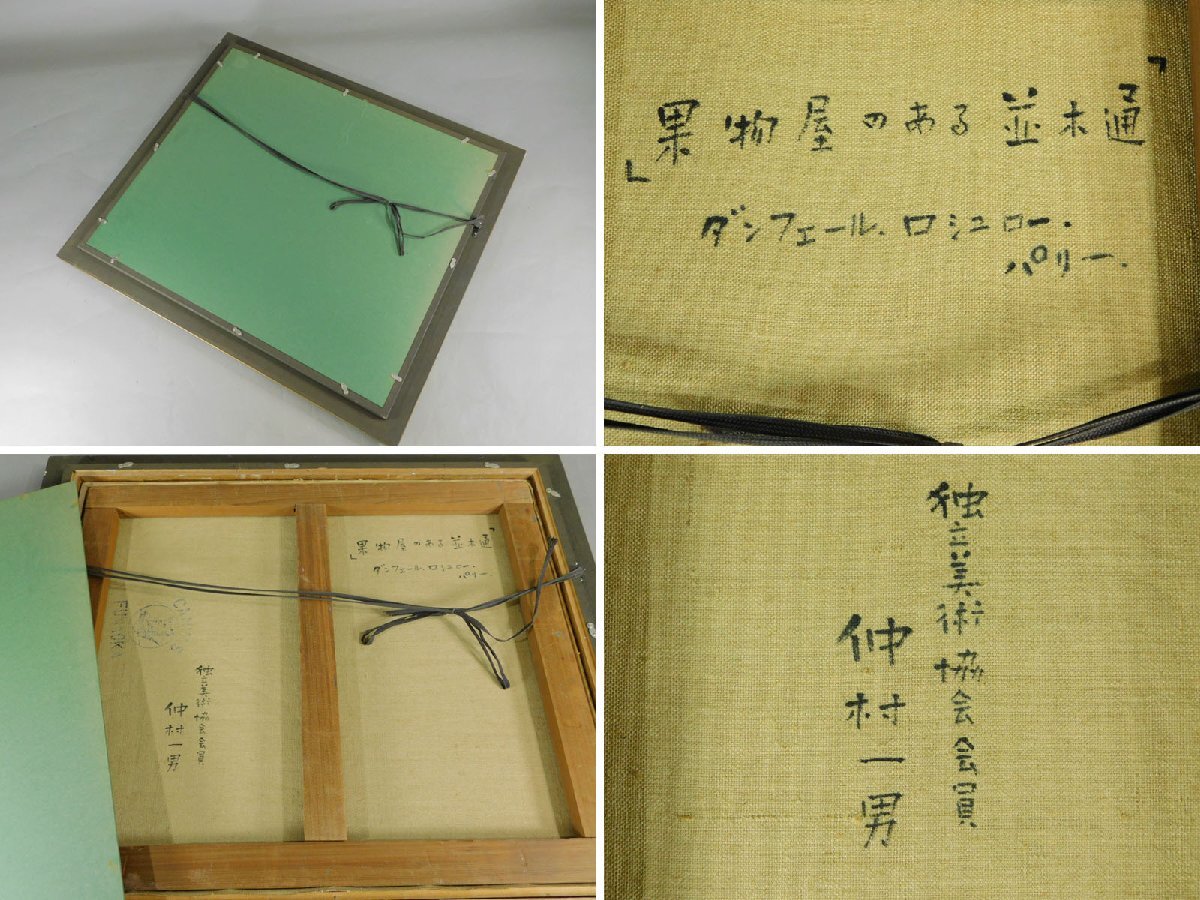 「果物屋のある並木通」
ダンフェール.ロシュロー.
パリー.
「果物屋のある並木通」
ダンフェール.ロシュロー.
パリー.
独立美術協会会員
仲村一男
独立美術協会会員
仲村一男